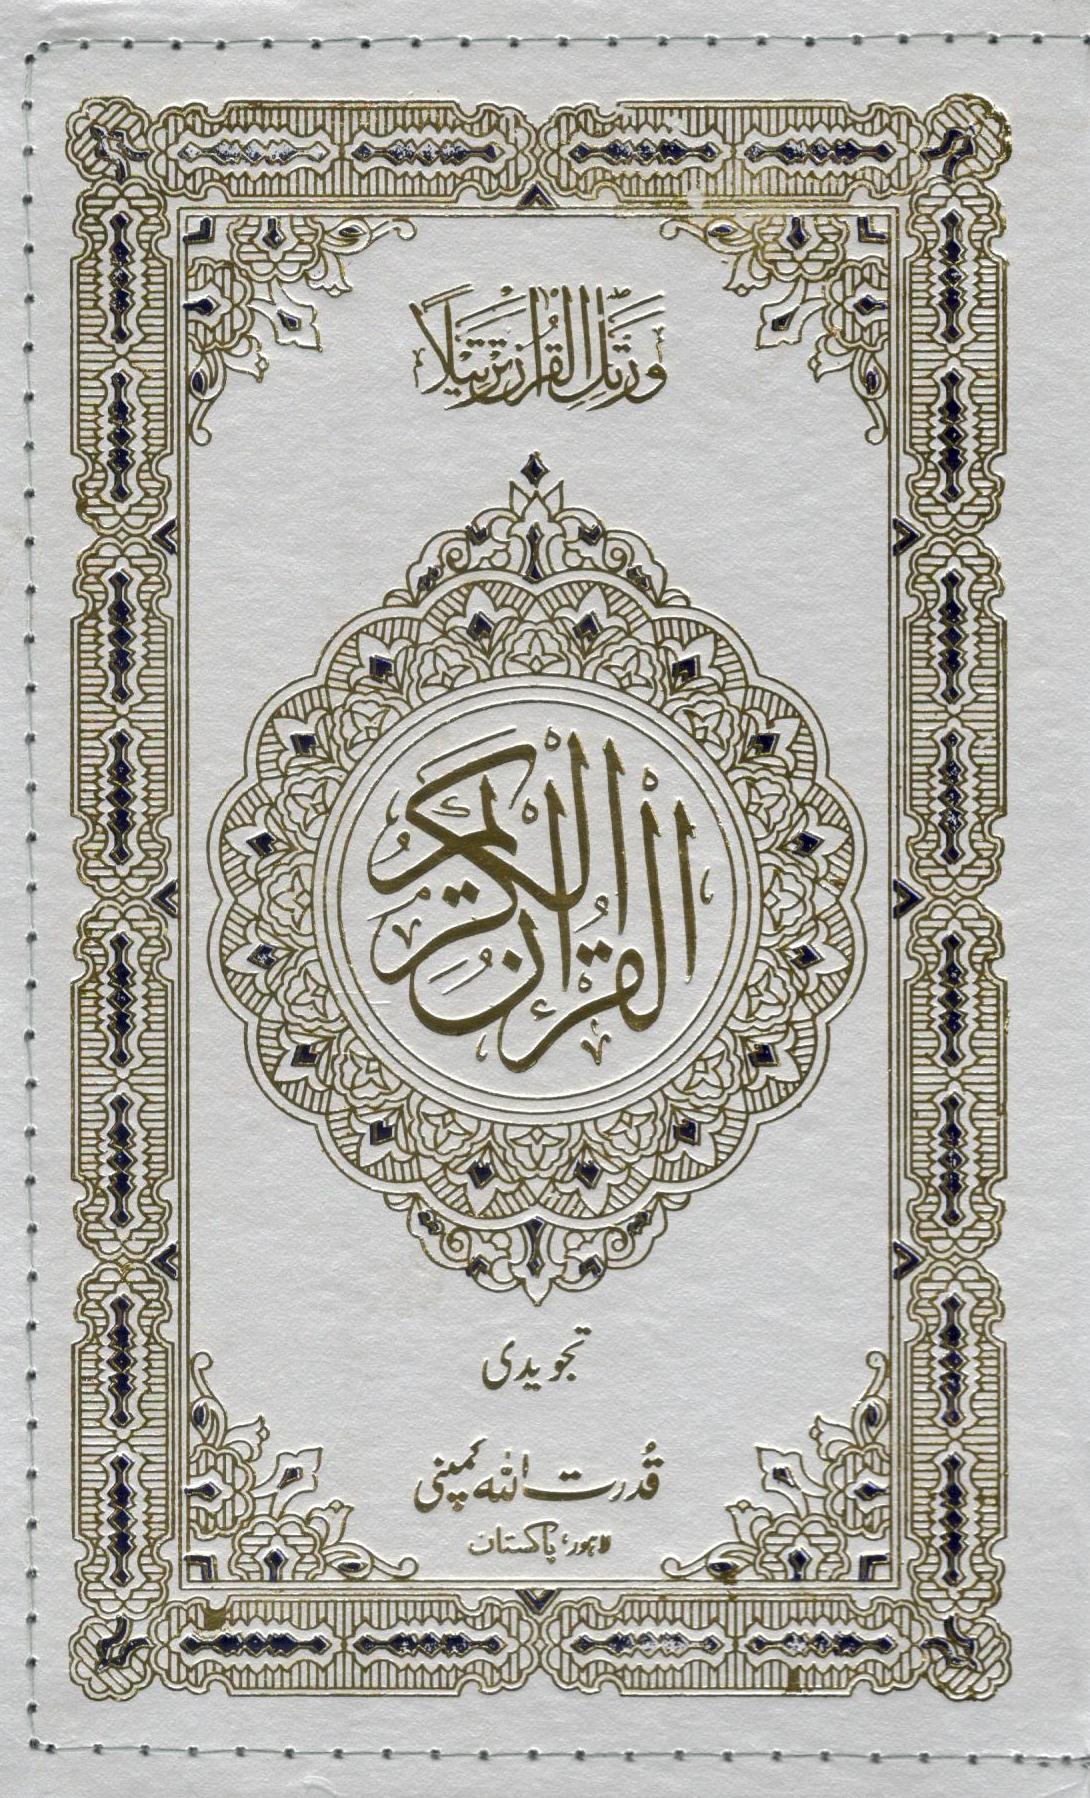 ورتل القرآن ترتیلاً
القرآن الکریم
تجویدی
قدرت اللہ کمپنی
لاہور، پاکستان